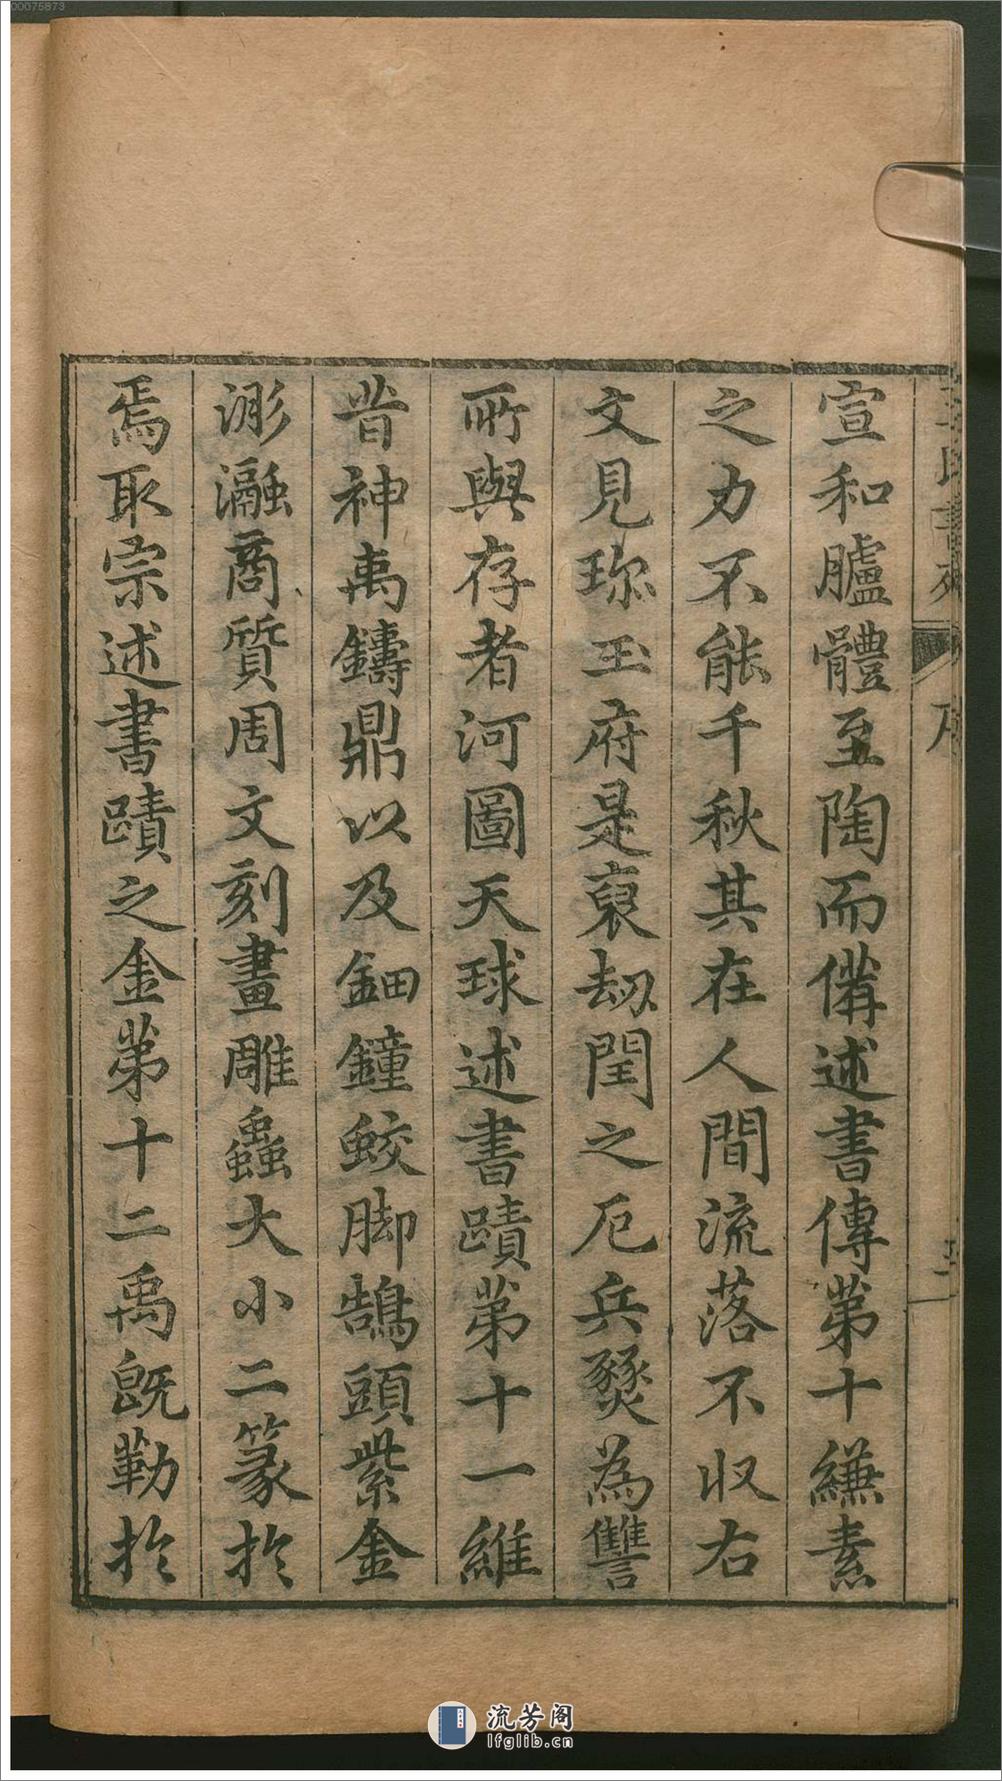 宣和臚體至陶而備述書傳第十縑素
之力不能千秋其在人間流落不收右
文見珎玉府是裒劫閏之厄兵燹為讐
所與存者河圖天球述書蹟第十一維
昔神禹鑄鼎以及鈿鐘蛟脚鵠頭紫金
濔瀜商質周文刻畫雕蟲大小二篆於
焉取宗述書蹟之金第十二禹旣勒於
00075873
流芳阁
lfglib.cn